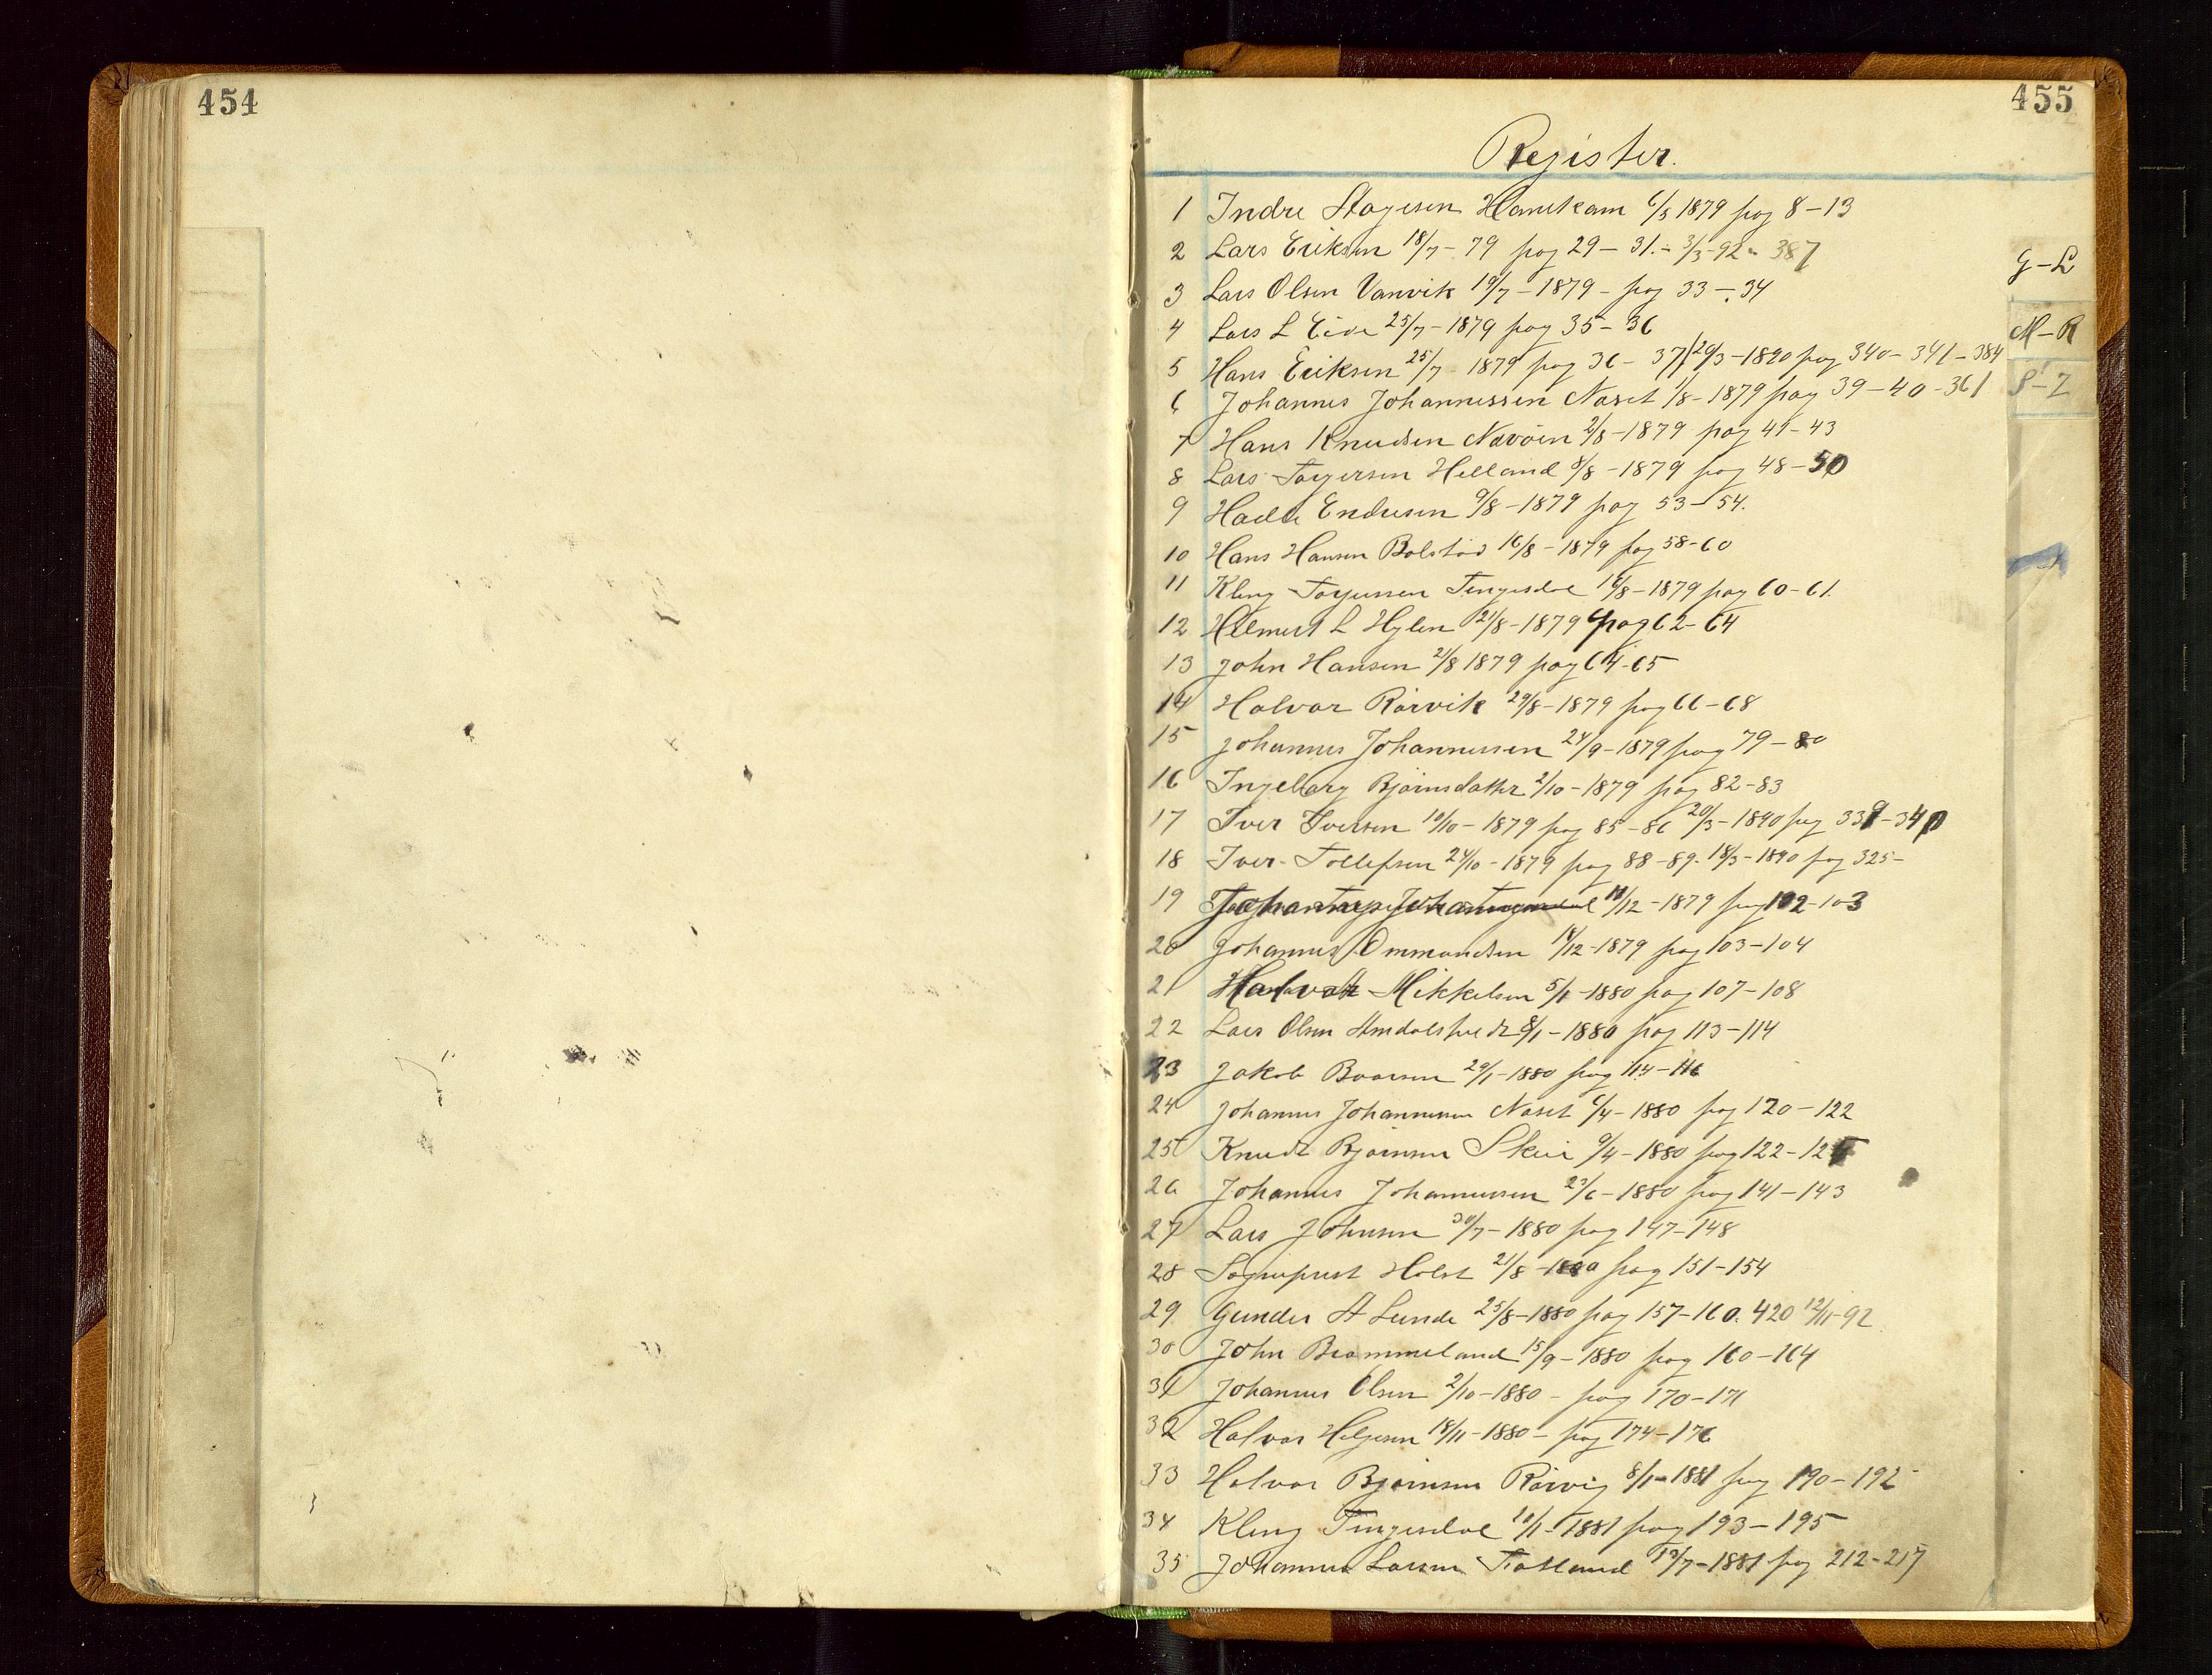 454
455
Register.
G-L
M-R
S-Z
1 Indre Hamekam 6/5 1879 pag 8-13
2 Lars Eriksen 18/7-79 pag 29-31.- 3/3-92- 387
3 Lars Olsen Vanvik 19/7-1879- pag 33-34
4 Lars L Eide 25/7-1879 pag 35-36
5 Hans Eriksen 25/7 1879 pag 36-37 20/3-1890 pag 340-341-384
6 Johannes Johannessen Naset 1/8-1879 pag 39-40-361
7 Hans Knudsen 2/8-1879 pag 41-43
8 Lars Torgersen Helland 8/8-1879 pag 48-50
9 Endresen 9/8-1879 pag 53-54.
10 Hans Hansen Bolstad 16/8-1879 pag 58-60
11 Kleng 16/8-1879 pag 60-61.
12 L Hylen 21/8-1879 pag 62-64
13 John Hansen 21/8 1879 pag 64-65
14 Halvor Rørvik 29/8-1879 pag 66-68
15 Johannes Johannessen 24/9-1879 pag 79-80
16 Ingeborg Bjørnsdatter 2/10-1879 pag 82-83
17 Iver Iversen 10/10-1879 pag 85-86 20/3-1890 pag 339-340
18 Iver Tollefsen 24/10-1879 pag 88-89. 18/3-1890 pag 325-
19 /12-1879 pag 102-103
20 Johannes Ommundsen /12-1879 pag 103-104
21 Halvor Mikkelsen 5/1-1880 pag 107-108
22 Lars Olsen 8/1-1880 pag 113-114
23 Jakob 29/1-1880 pag 114-116
24 Johannes Johannessen Naset 6/4-1880 pag 120-122
25 Knudt Bjørnsen 9/4-1880 pag 122-125
26 Johannes Johannessen 23/6-1880 pag 141-143
27 Lars Johnsen 30/7-1880 pag 147-148
28 Sogneprest Holst 21/8-1880 pag 151-154
29 Gunder A Lunde 25/8-1880 pag 157-160. 420 12/11-92
30 John Brommeland 15/9-1880 pag 160-164
31 Johannes Olsen 2/10-1880- pag 170-171
32 Halvor Helgesen 18/11-1880- pag 174-176
33 Halvor Bjørnsen Rørvig 8/1-1881 pag 190-192
34 Kleng 10/1-1881 pag 193-195
35 Johannes Larsen 19/7-1881 pag 212-217